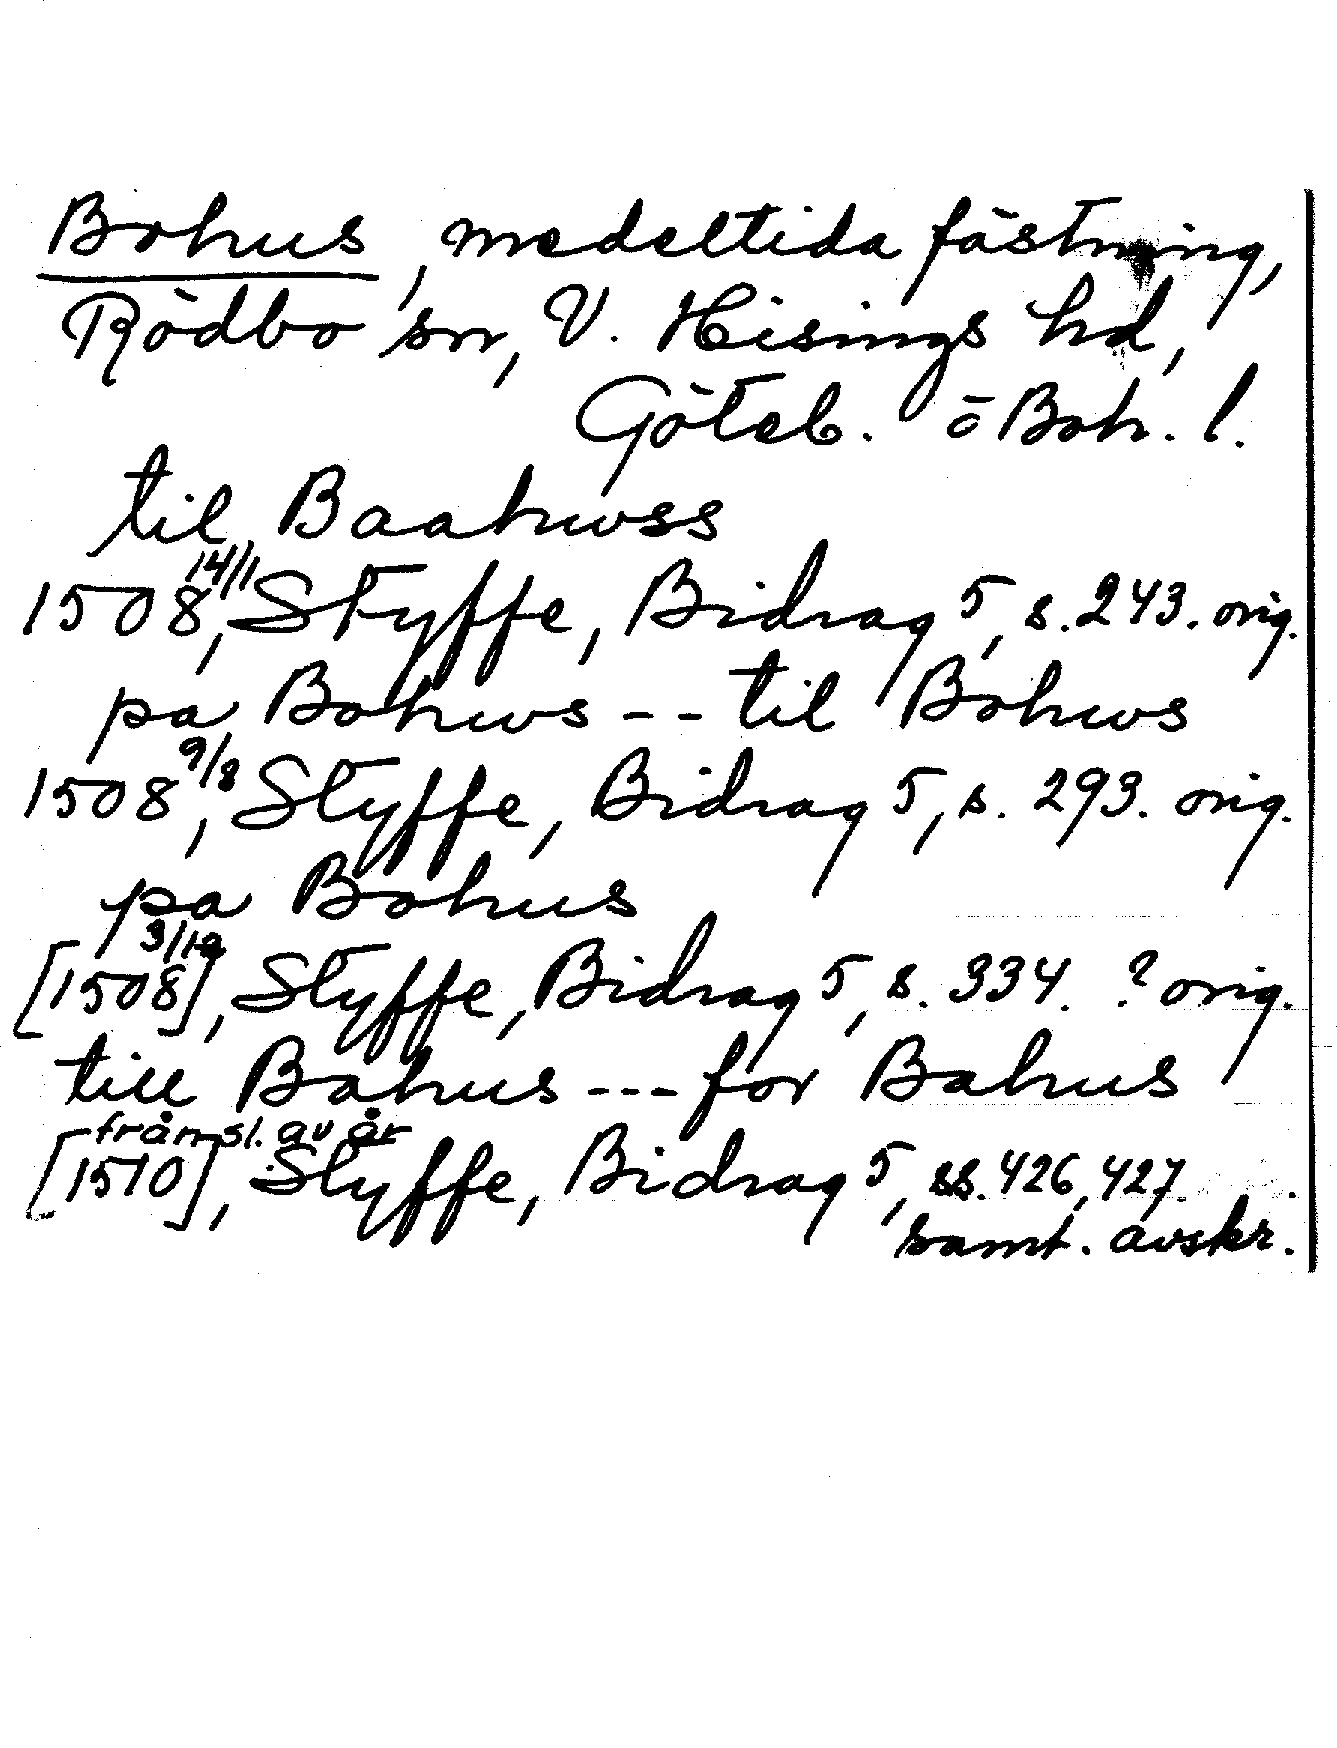 Bohus, medeltida fästning,
Rödbo sn, V. Hisings hd,
Göteb. o Boh. l.
til Baahwss
1508 14/1, Styffe, Bidrag 5, s. 243. orig.
pa Bohws -- til Bohws
1508 9/8, Styffe, Bidrag 5, s. 293. orig.
pa Bohus
[1508] 3/12, Styffe, Bidrag 5, s. 334. ? orig.
till Bahus --- for Bahus
från sl. av år
[1510], Styffe, Bidrag 5, ss. 426, 427
samt. avskr.